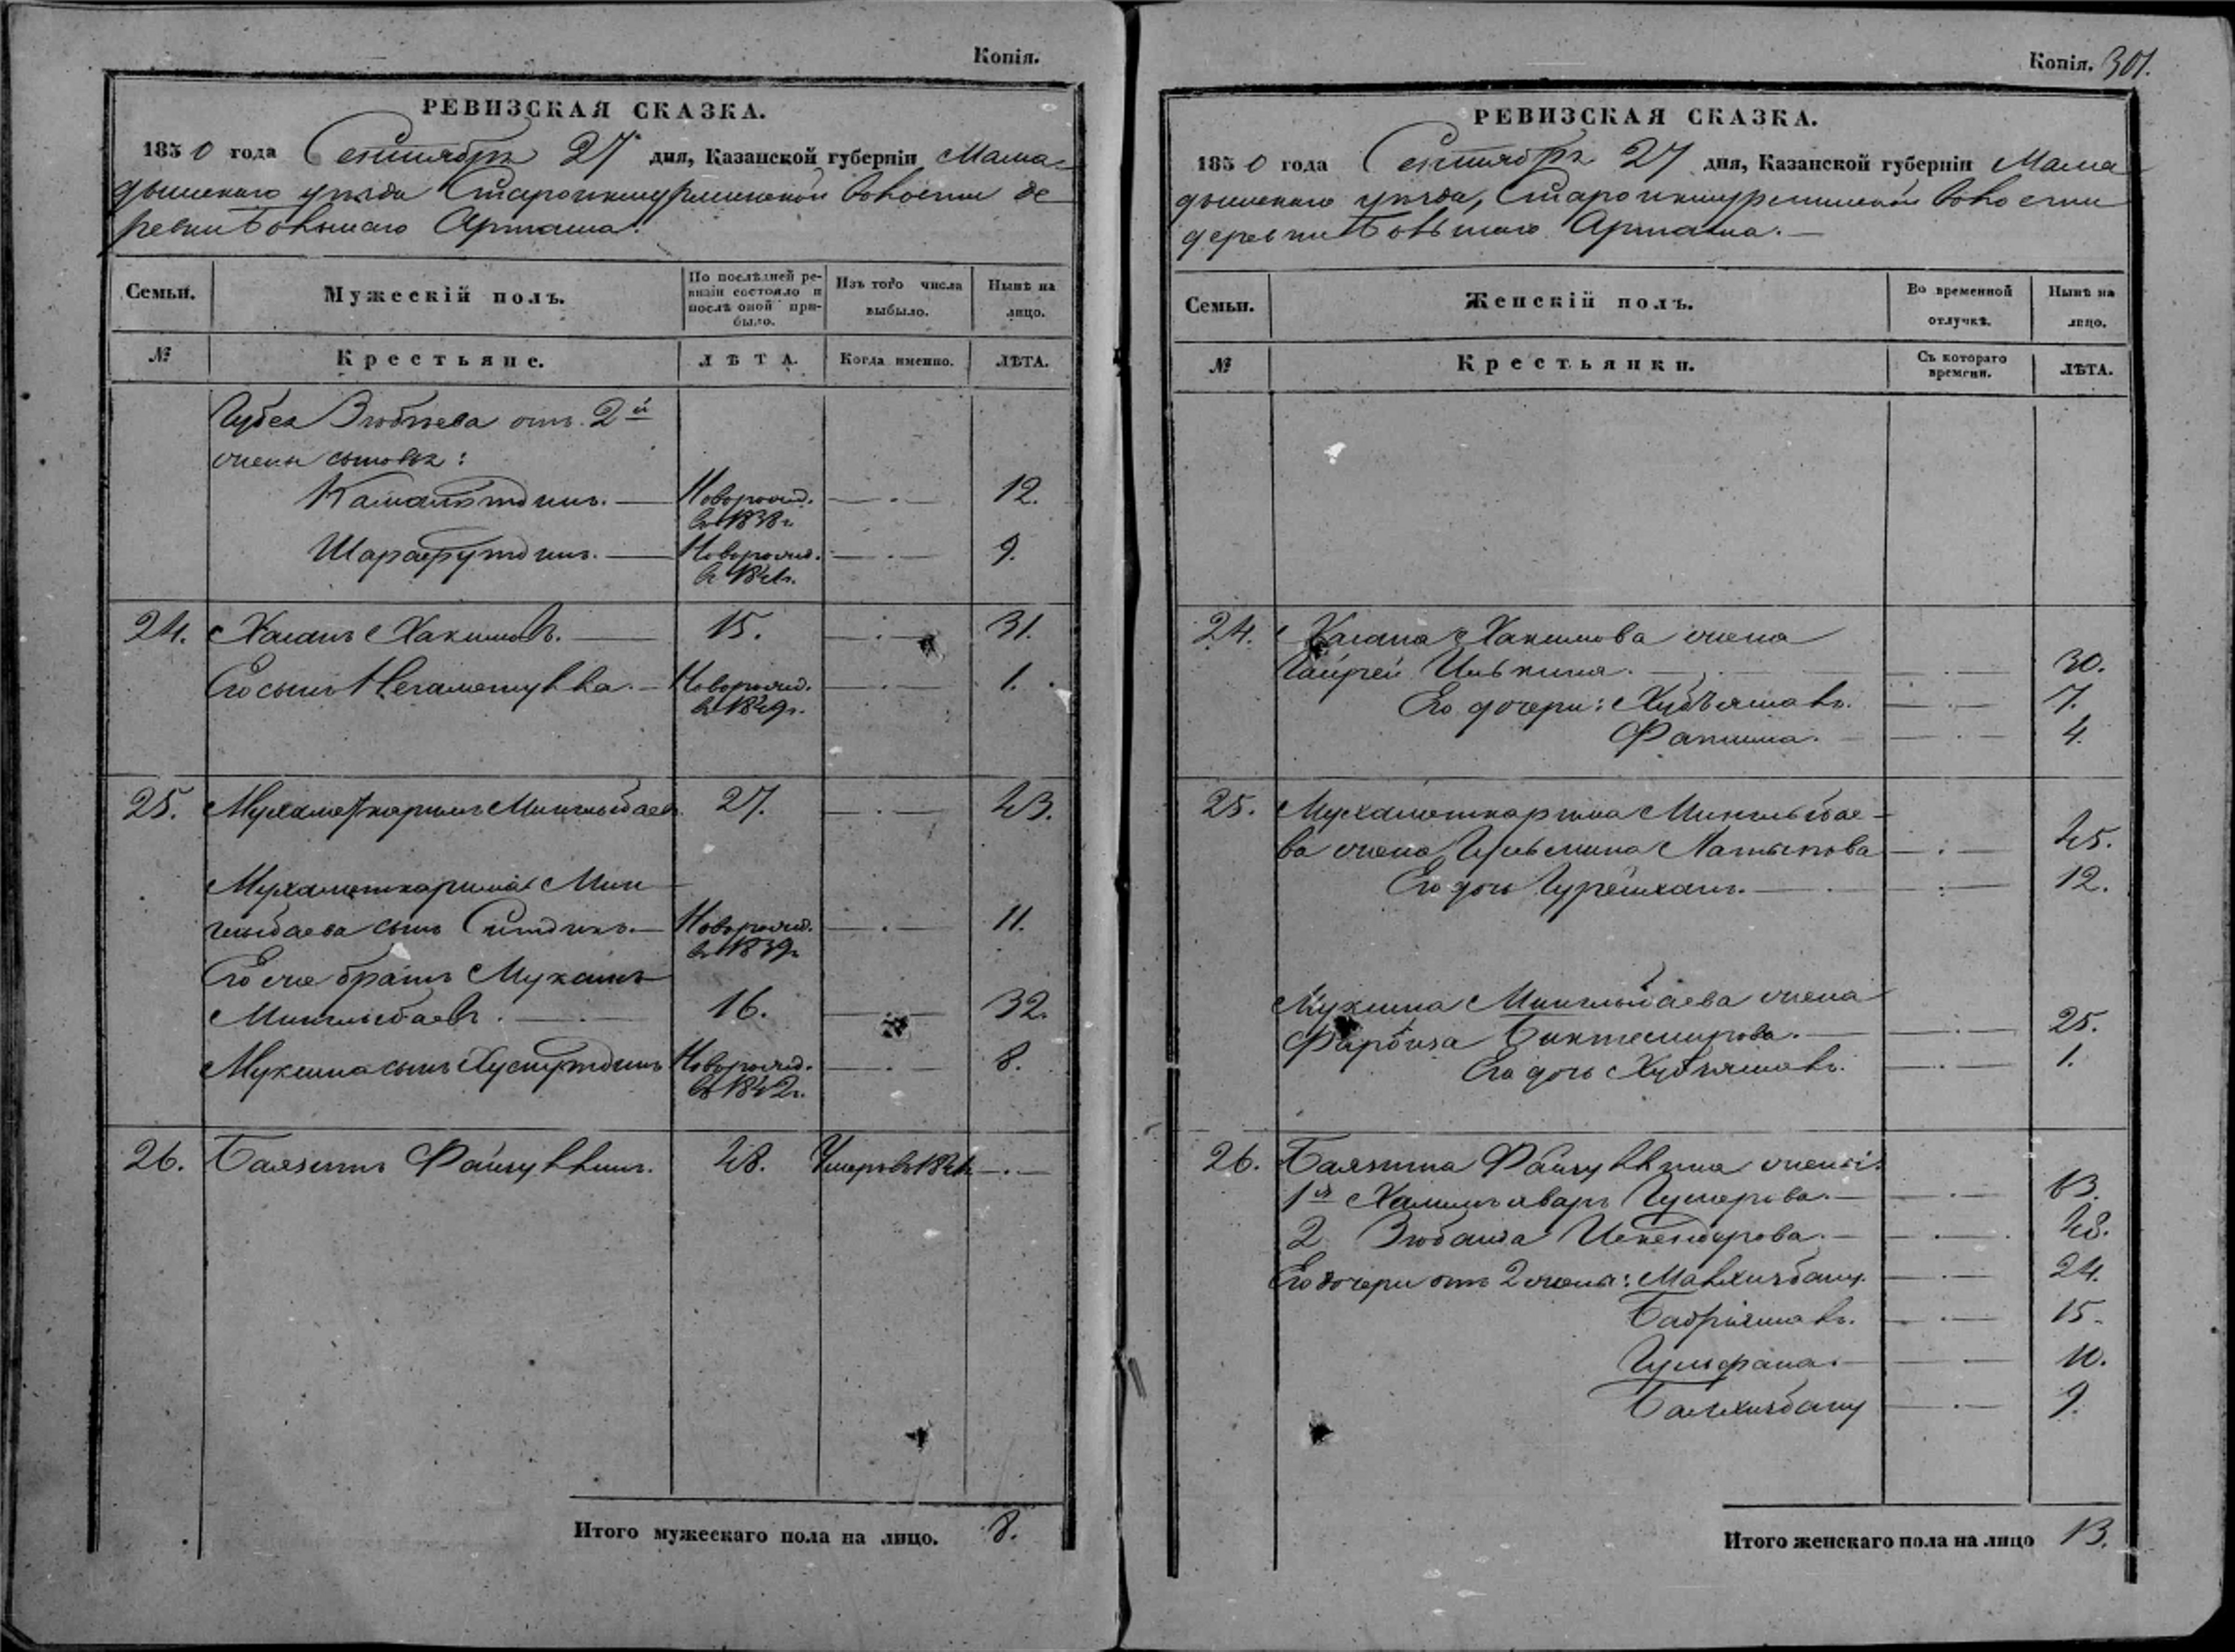 Копія.
РЕВИЗСКАЯ СКАЗКА.
1850 года Сентября 27 дня, Казанской губерніи Мама-
дышскаго уѣзда Старокишурминской волости де
ревни Большаго Арташа.
Семьи.
Мужескій полъ.
По послѣдней ре-
визіи состояло и
послѣ оной при-
было.
Изъ того числа
выбыло.
Нынѣ на
лицо.
№
Крестьяне.
ЛѢТА.
Когда именно.
ЛѢТА.
Губея Зюбѣева отъ 2й
жены сыновья:
Камалютдинъ. Новорожд. 12.
въ 1838г.
Шарафутдинъ. Новорожд. 9.
въ 1841г.
24. Хасанъ Хакимовъ. 15. 31.
Его сынъ Негаметулла. Новорожд. 1.
въ 1849г.
25. Мухаметкаримъ Минглибаевъ 27. 43.
Мухаметкарима Мин
глибаева сынъ Ситдикъ. Новорожд. 11.
въ 1839г.
Его же братъ Мукминъ
Минглибаевъ. 16. 32.
Мукмина сынъ Хуснутдинъ Новорожд. 8.
въ 1842г.
26. Баязитъ Файзуллинъ. 48. Умеръ въ 1841
Итого мужескаго пола на лицо. 8.
Копія. 301.
РЕВИЗСКАЯ СКАЗКА.
1850 года Сентября 27 дня, Казанской губерніи Мама
дышскаго уѣзда, Старокишурминской волости
деревни Большаго Арташа.
Семьи.
Женскій полъ.
Во временной
отлучкѣ.
Нынѣ на
лицо.
№
Крестьянки.
Съ котораго
времени.
ЛѢТА.
24. Хасана Хакимова жена
30.
Его дочери: Хубъямалъ. 7.
Фатима. 4.
25. Мухаметкарима Минглибае-
ва жена Латыпова 45.
Его дочь 12.
Мукмина Минглибаева жена
Фарбиза Биктемирова. 25.
Его дочь Хубъямалъ. 1.
26. Баязита Файзуллина жены:
1я Гумерова. 63.
2 Зюбаида Искендярова. 48.
Его дочери отъ 2 жены: 24.
Бадріямалъ. 15.
Гульфана. 10.
9.
Итого женскаго пола на лицо 13.